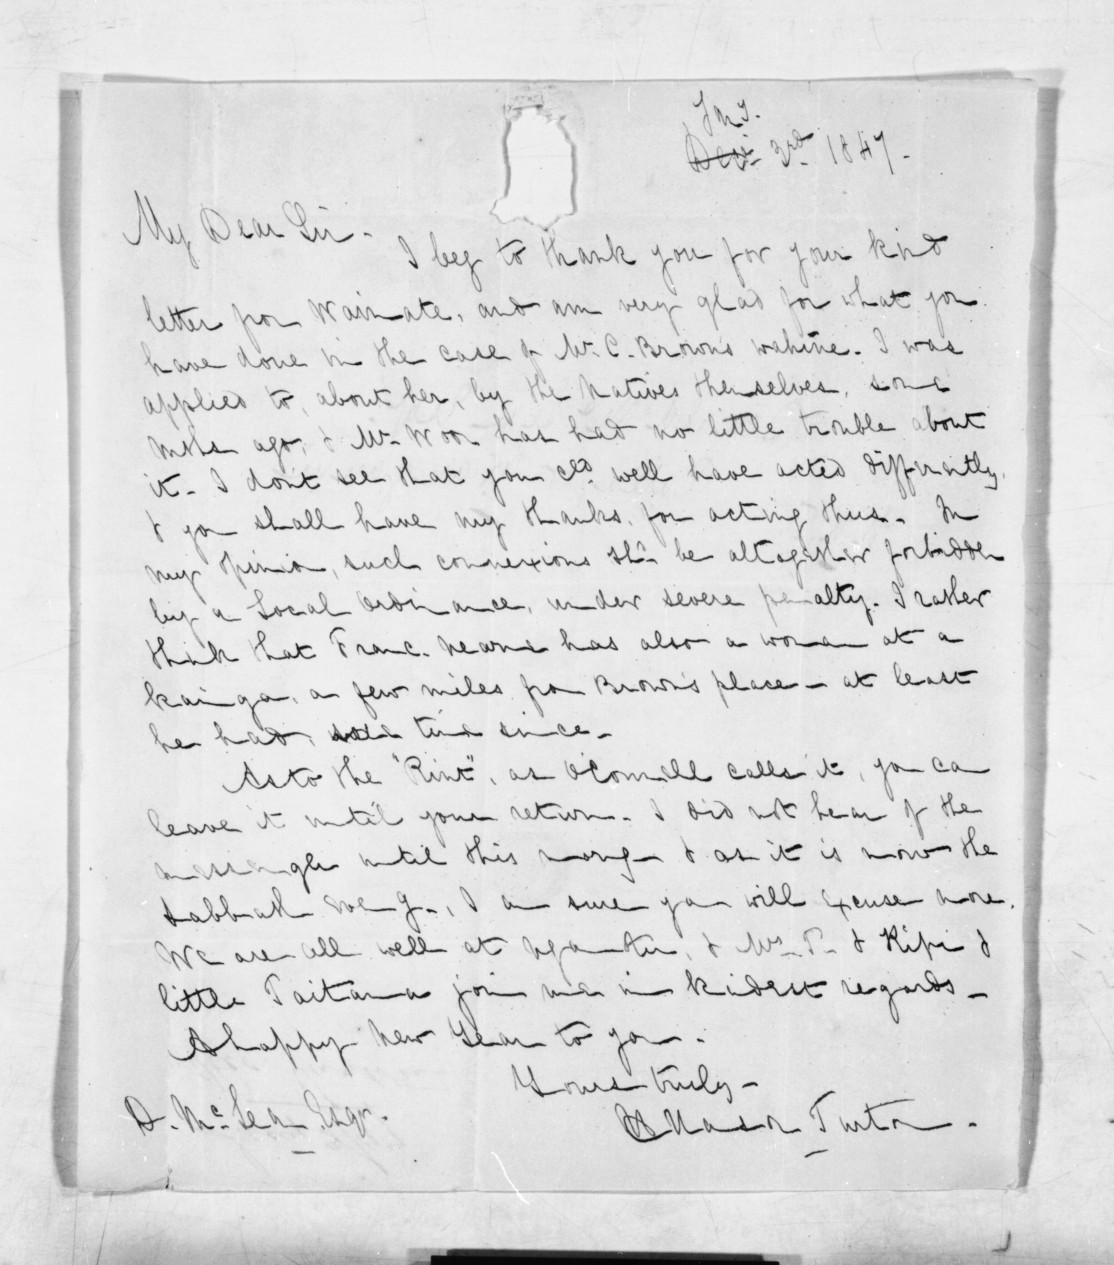 Jny.
Decr 3rd 1847.
My Dear Sir.
I beg to thank you for your kind
letter from Waimate, and am very glad for what you
have done in the case of Mr. C. Brown's wahine. I was
applied to, about her, by the Natives themselves, some
mths ago, & Mr. Woon has had no little trouble about
it. I dont see that you cld well have acted differently,
& you shall have my thanks, for acting thus. In
my opinion, such connexions shd be altogether forbidden
by a Local Ordinance, under severe penalty. I rather
think that Franc. has also a woman at a
kainga, a few miles from Brown's place - at least
he had, some time since.
As to the "Rint", as O'Connell calls it, you can
leave it until your return. I did not hear of the
messenger until this morng & as it is now the
Sabbath eveg., I am sure you will excuse more.
We are all well at Ngamotu, & Mrs. T. & Kipi &
little Taitana join me in kindest regards -
A happy New Year to you.
Yours truly -
H Hanson Turton.
D. McLean Esqr.